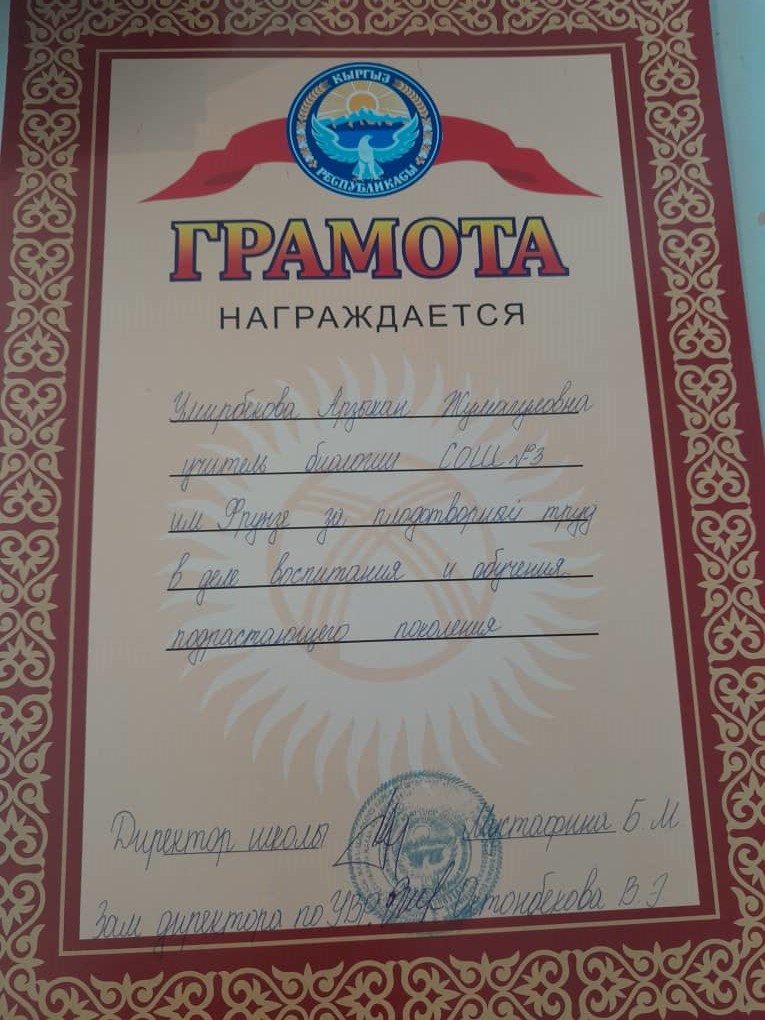 КЫРГЫЗ
РЕСПУБЛИКАСЫ
ГРАМОТА
НАГРАЖДАЕТСЯ
Умирбекова Арзыкан Жумагуловна
учитель биологии СОШ №3
им Фрунзе за плодотворный труд
в деле воспитания и обучения
подрастающего поколения
Директор школы Мустафина Б.М
Зам директора по УВР. В.Э